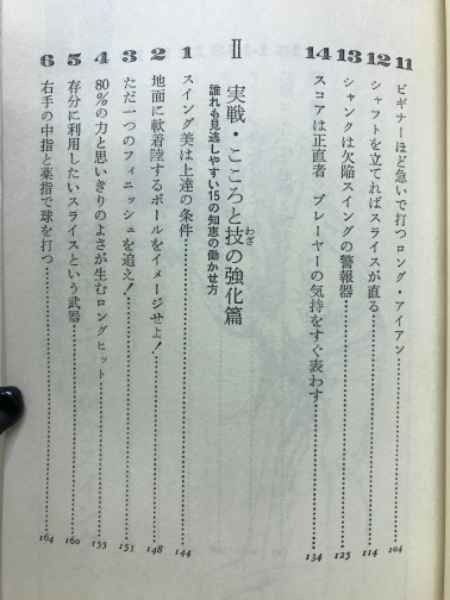 11 ビギナーほど急いで打つロング・アイアン…………104
12 シャフトを立てればスライスが直る…………114
13 シャンクは欠陥スイングの警報器…………125
14 スコアは正直者 プレーヤーの気持をすぐ表わす…………134
II 実戦・こころと技の強化篇
わざ
誰れも見逃しやすい15の知恵の働かせ方
1 スイング美は上達の条件…………144
2 地面に軟着陸するボールをイメージせよ!…………148
3 ただ一つのフィニッシュを追え!…………153
4 80%の力と思いきりのよさが生むロングヒット…………155
5 存分に利用したいスライスという武器…………160
6 右手の中指と薬指で球を打つ…………164